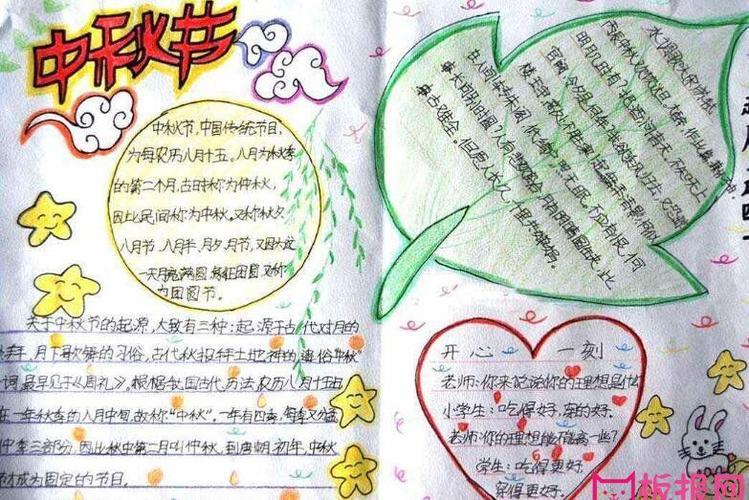 中秋节
中秋节,中国传统节目,
为每农历八月十五。八月为秋季
的第二个月,古时称为仲秋,
因此民间称为中秋。又称秋夕
八月节,八月半,月夕,月节,又因为这
一天月亮满圆,象征团圆,又称
为团圆节。
关于中秋节的起源,大致有三种:起源于古代对月的
月下歌舞的习俗,古代秋报拜土地神的遗俗"中秋"
一词,最早见于《周礼》。根据我国古代历法,农历八月十五
在一年秋季的八月中旬,故称"中秋"。一年有四季,每季又分孟
仲季三部分,因此秋中第二月叫仲秋,到唐朝初年,中秋
才成为固定的节日。
水调歌头(宋)苏轼
丙辰中秋,欢饮达旦,大醉,作此篇,兼怀子由
明月几时有?把酒问青天。不知天上
宫阙,今夕是何年。我欲乘风归去,又恐琼
楼玉宇,高处不胜寒。起舞弄清影,何似
在人间。转朱阁,低绮户,照无眠。不应有恨,何
事长向别时圆?人有悲欢离合,月有阴晴圆缺,此
事古难全。但愿人长久,千里共婵娟。
开心一刻
老师:你来说说你的理想是什么
小学生:吃得好,穿的好.
老师:你的理想能不能高一些?
学生:吃得更好,
穿得更好.
板报网